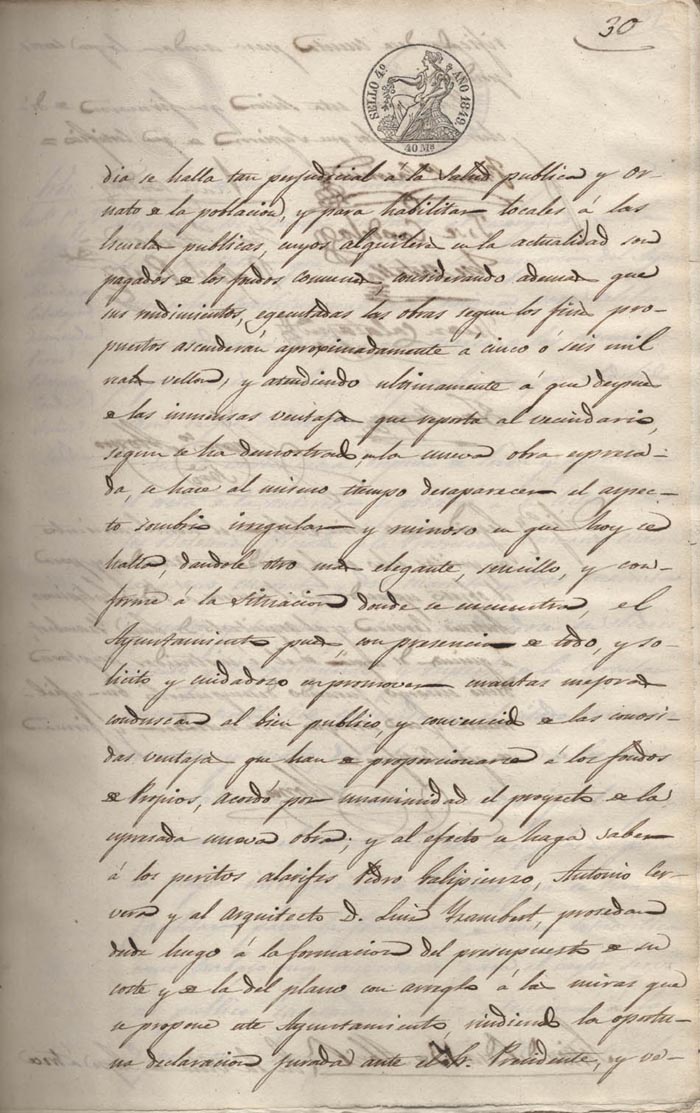 30
SELLO 4º AÑO 1849.
40 Ms
dia se halla tan perjudicial a la salud publica y or-
nato de la poblacion, y para habilitar locales á las
Escuelas publicas, cuyos alquileres en la actualidad son
pagados de los fondos comunes, considerando ademas que
sus rendimientos, egecutadas las obras segun los fines pro-
puestos ascenderan aproximadamente á cinco ó seis mil
reales vellon, y atendiendo ultimamente á que despues
de las inmensas ventajas que reporta al vecindario,
segun se ha demostrado, en la nueva obra espresa-
da, se hace al mismo tiempo desaparecer el aspec-
to sombrio irregular y ruinoso en que hoy se
halla, dandole otro mas elegante, sencillo, y con-
forme á la situacion donde se encuentra, el
Ayuntamiento pues, con presencia de todo, y so-
licito y cuidadoso en promover cuantas mejoras
conduscan al bien publico, y convencido de las conosi-
das ventajas que han de proporcionarse á los fondos
de Propios, acordó por unanimidad el proyecto de la
espresada nueva obra; y al efecto se haga saber
á los peritos alarifes Pedro Gallipienzo, Antonio Cer-
vera y al Arquitecto D. Luis Zeambert, prosedan
desde luego á la formacion del presupuesto de su
coste y de la del plano con arreglo á las miras que
se propone este Ayuntamiento, rindiendo la oportu-
na declaracion jurada ante el Sr. Presidente, y ve-